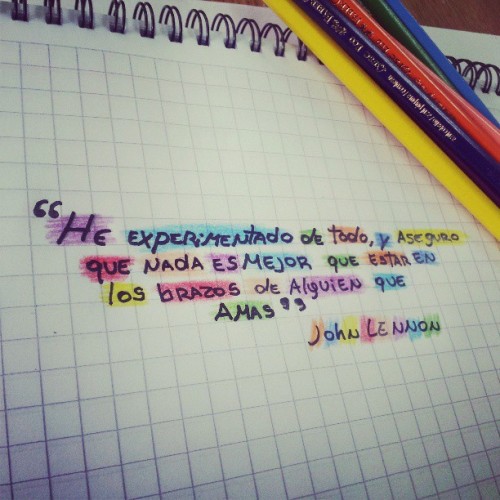 “HE EXPERIMENTADO DE TODO, Y ASEGURO
QUE NADA ES MEJOR QUE ESTAR EN
LOS BRAZOS DE ALGUIEN QUE
AMAS”
JOHN LENNON